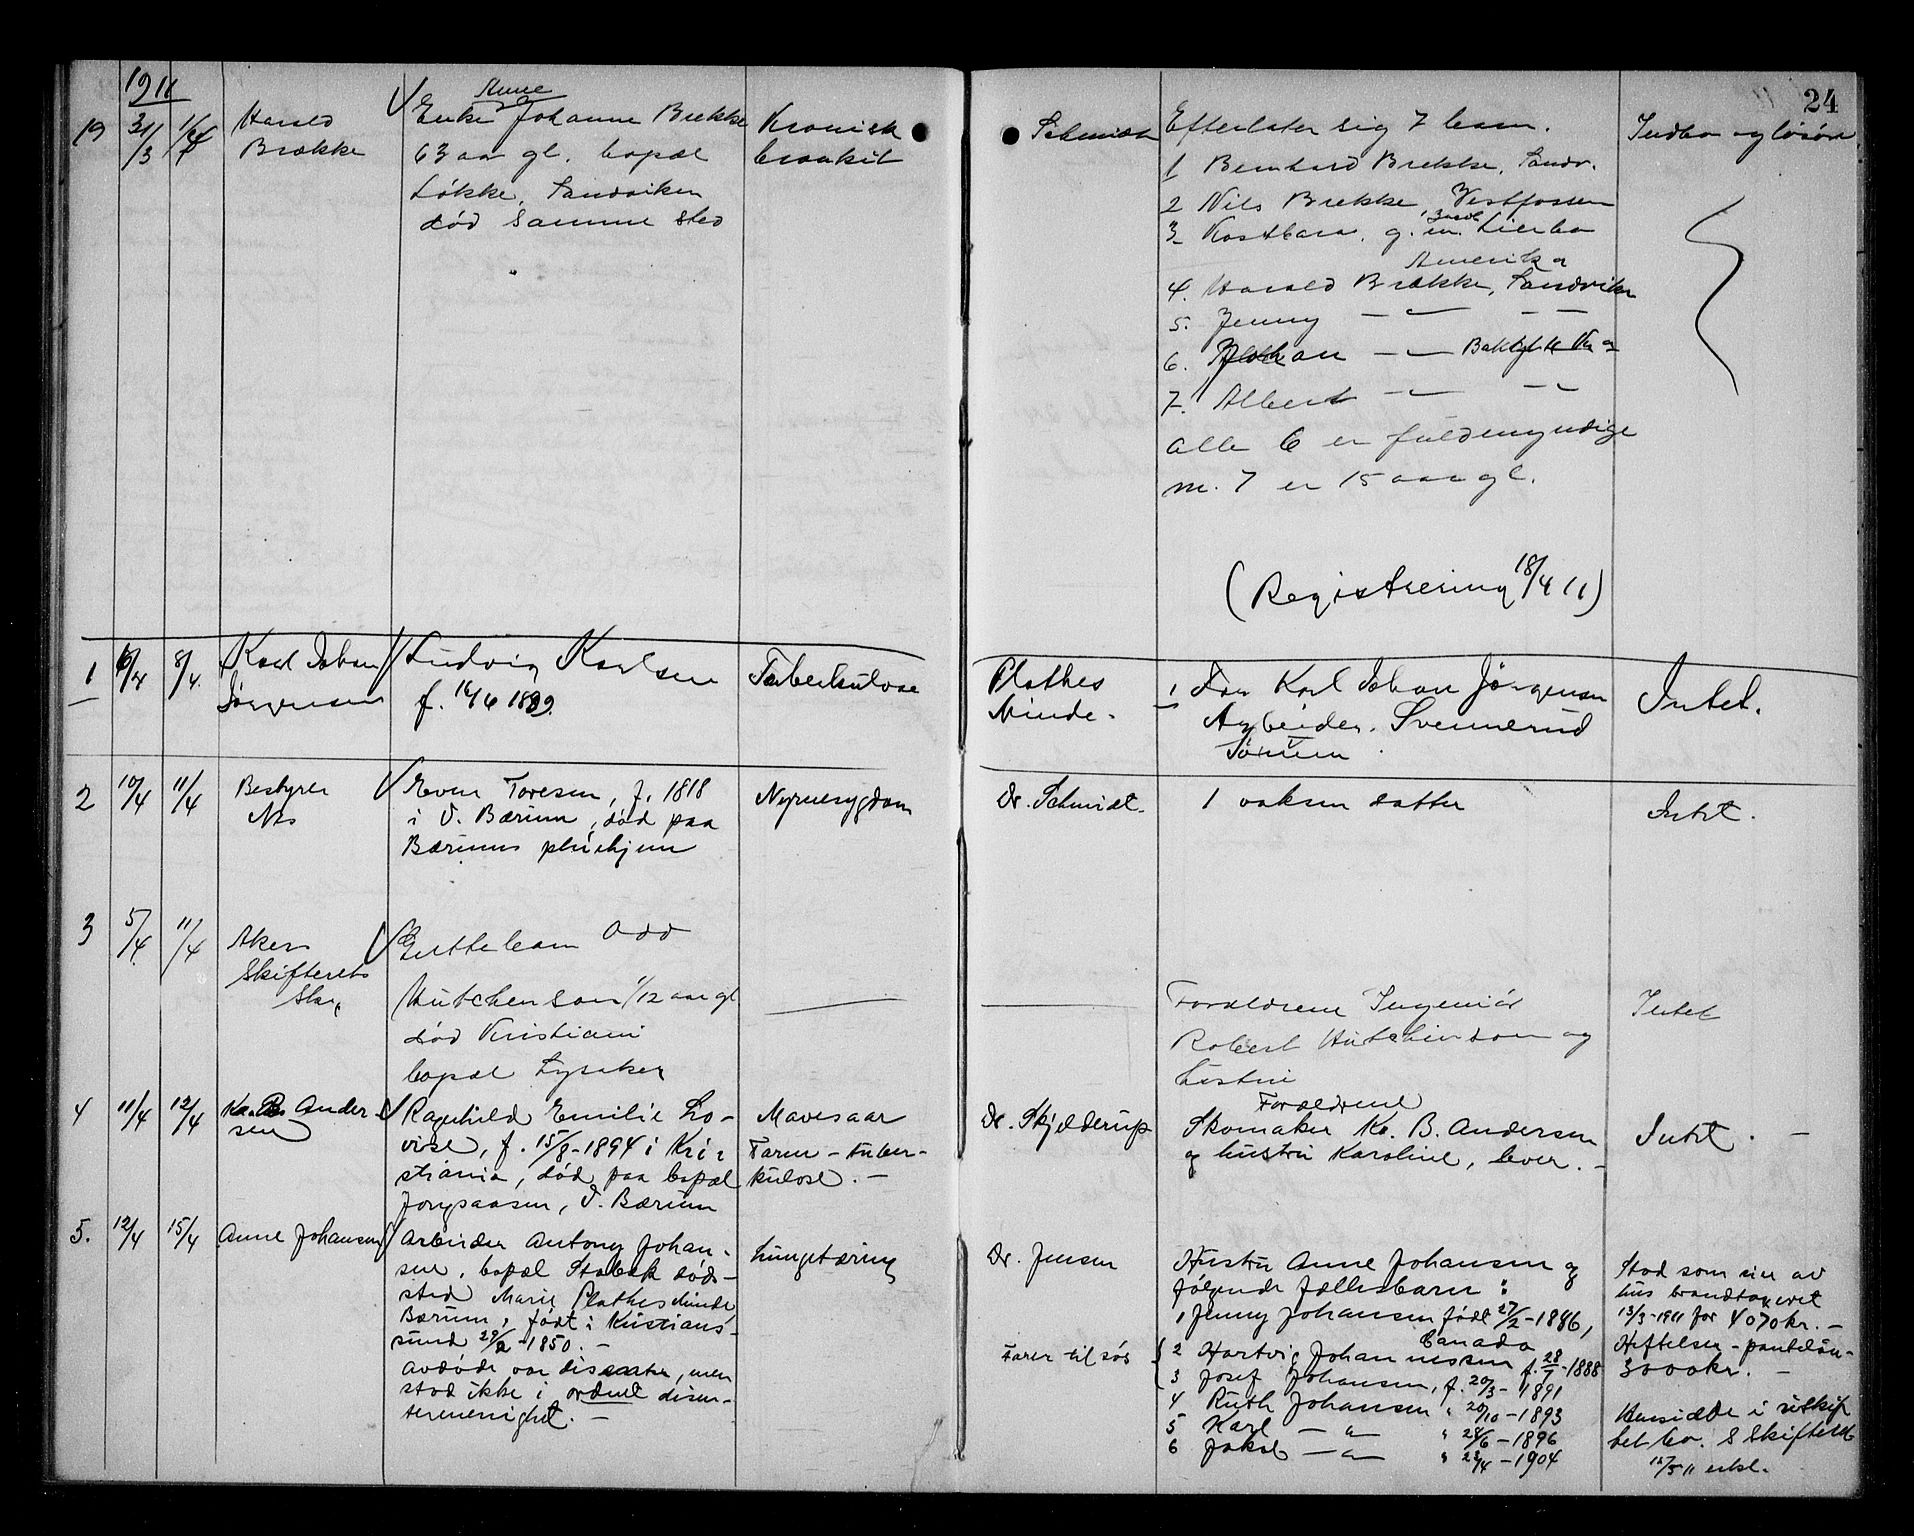 1911
24
19 31/3 1/4
Harald
Brække
Anne
Enke Johanne Brekke
63 aar gl. bopæl
Løkke, Sandviken
død samme sted
Kronisk
bronkit
Schmidt
Efterlater sig 7 barn.
1 Bernhard Brekke, Sandv.
2 Nils Brekke, Vestfossen
3 Kostbara, g. m. Lierbo
Amerika
4. Harald Brække, Sandviken
5. Jenny — " — — " —
6. Johan — " —
7. Albert — " — — " —
alle 6 er fuldmyndige
nr. 7 er 15 aar gl.
(Registrering 18/4 11)
Indbo og løsøre
1 6/4 8/4
Karl Johan
Jørgensen
Ludvig Karlsen
f. 16/6 1899.
Tuberkulose
Plathes
Minde.
1 Far Karl Johan Jørgensen
Arbeider. Svennerud
Sørum
Intet.
2 10/4 11/4
Bestyrer
Næs
Even Toresen, f. 1818
i V. Bærum, død paa
Bærums pleiehjem
Nyresygdom
Dr. Schmidt.
1 voksen datter
Intet.
3 5/4 11/4
Akers
Skifterets
Skr.
Guttebarn Odd
Hutchenson 1/12 aar gl
død Kristiani
bopæl Lysaker
Forældrene Ingeniør
Robert Hutchinson og
hustru
Intet
4 11/4 12/4
Anders
sen
Ragnhild Emilie Lo-
vise, f. 15/8-1894 i Kri-
stiania, død paa bopæl
Jongsaasen, V. Bærum
Mavesaar
Tarm-tuber-
kulose. —
Dr. Skjelderup
Forældrene
Skomaker K. B. Andersen
og hustru Karoline, lever. —
Intet. —
5. 12/4 15/4
Anne Johansen
Arbeider Antony Johan-
sen, bopæl Stabæk døds-
sted Marie Plathes Minde
Bærum, født i Kristians-
sund 29/2-1850. —
avdøde var dissenter, men
stod ikke i ordnet dissen-
termenighet. —
Lungetæring
Dr. Jensen
Farer til sjøs
Hustru Anne Johansen og
følgende fællesbarn:
1 Jenny Johansen født 27/2-1886,
Canada
2 Hartvig Johannessen f. 28/7-1888
3 Josef Johansen, f. 20/3-1891
4 Ruth Johansen " 20/10-1893
5 Karl — " — " 28/6-1896
6 Jakob — " — " 22/4-1904
Stod som eier av
hus brandtaxeret
13/3-1911 for 4070 kr. —
Heftelser - pantelån-
3000 kr. —
Hensidde i uskif
tet bo. S Skifteret